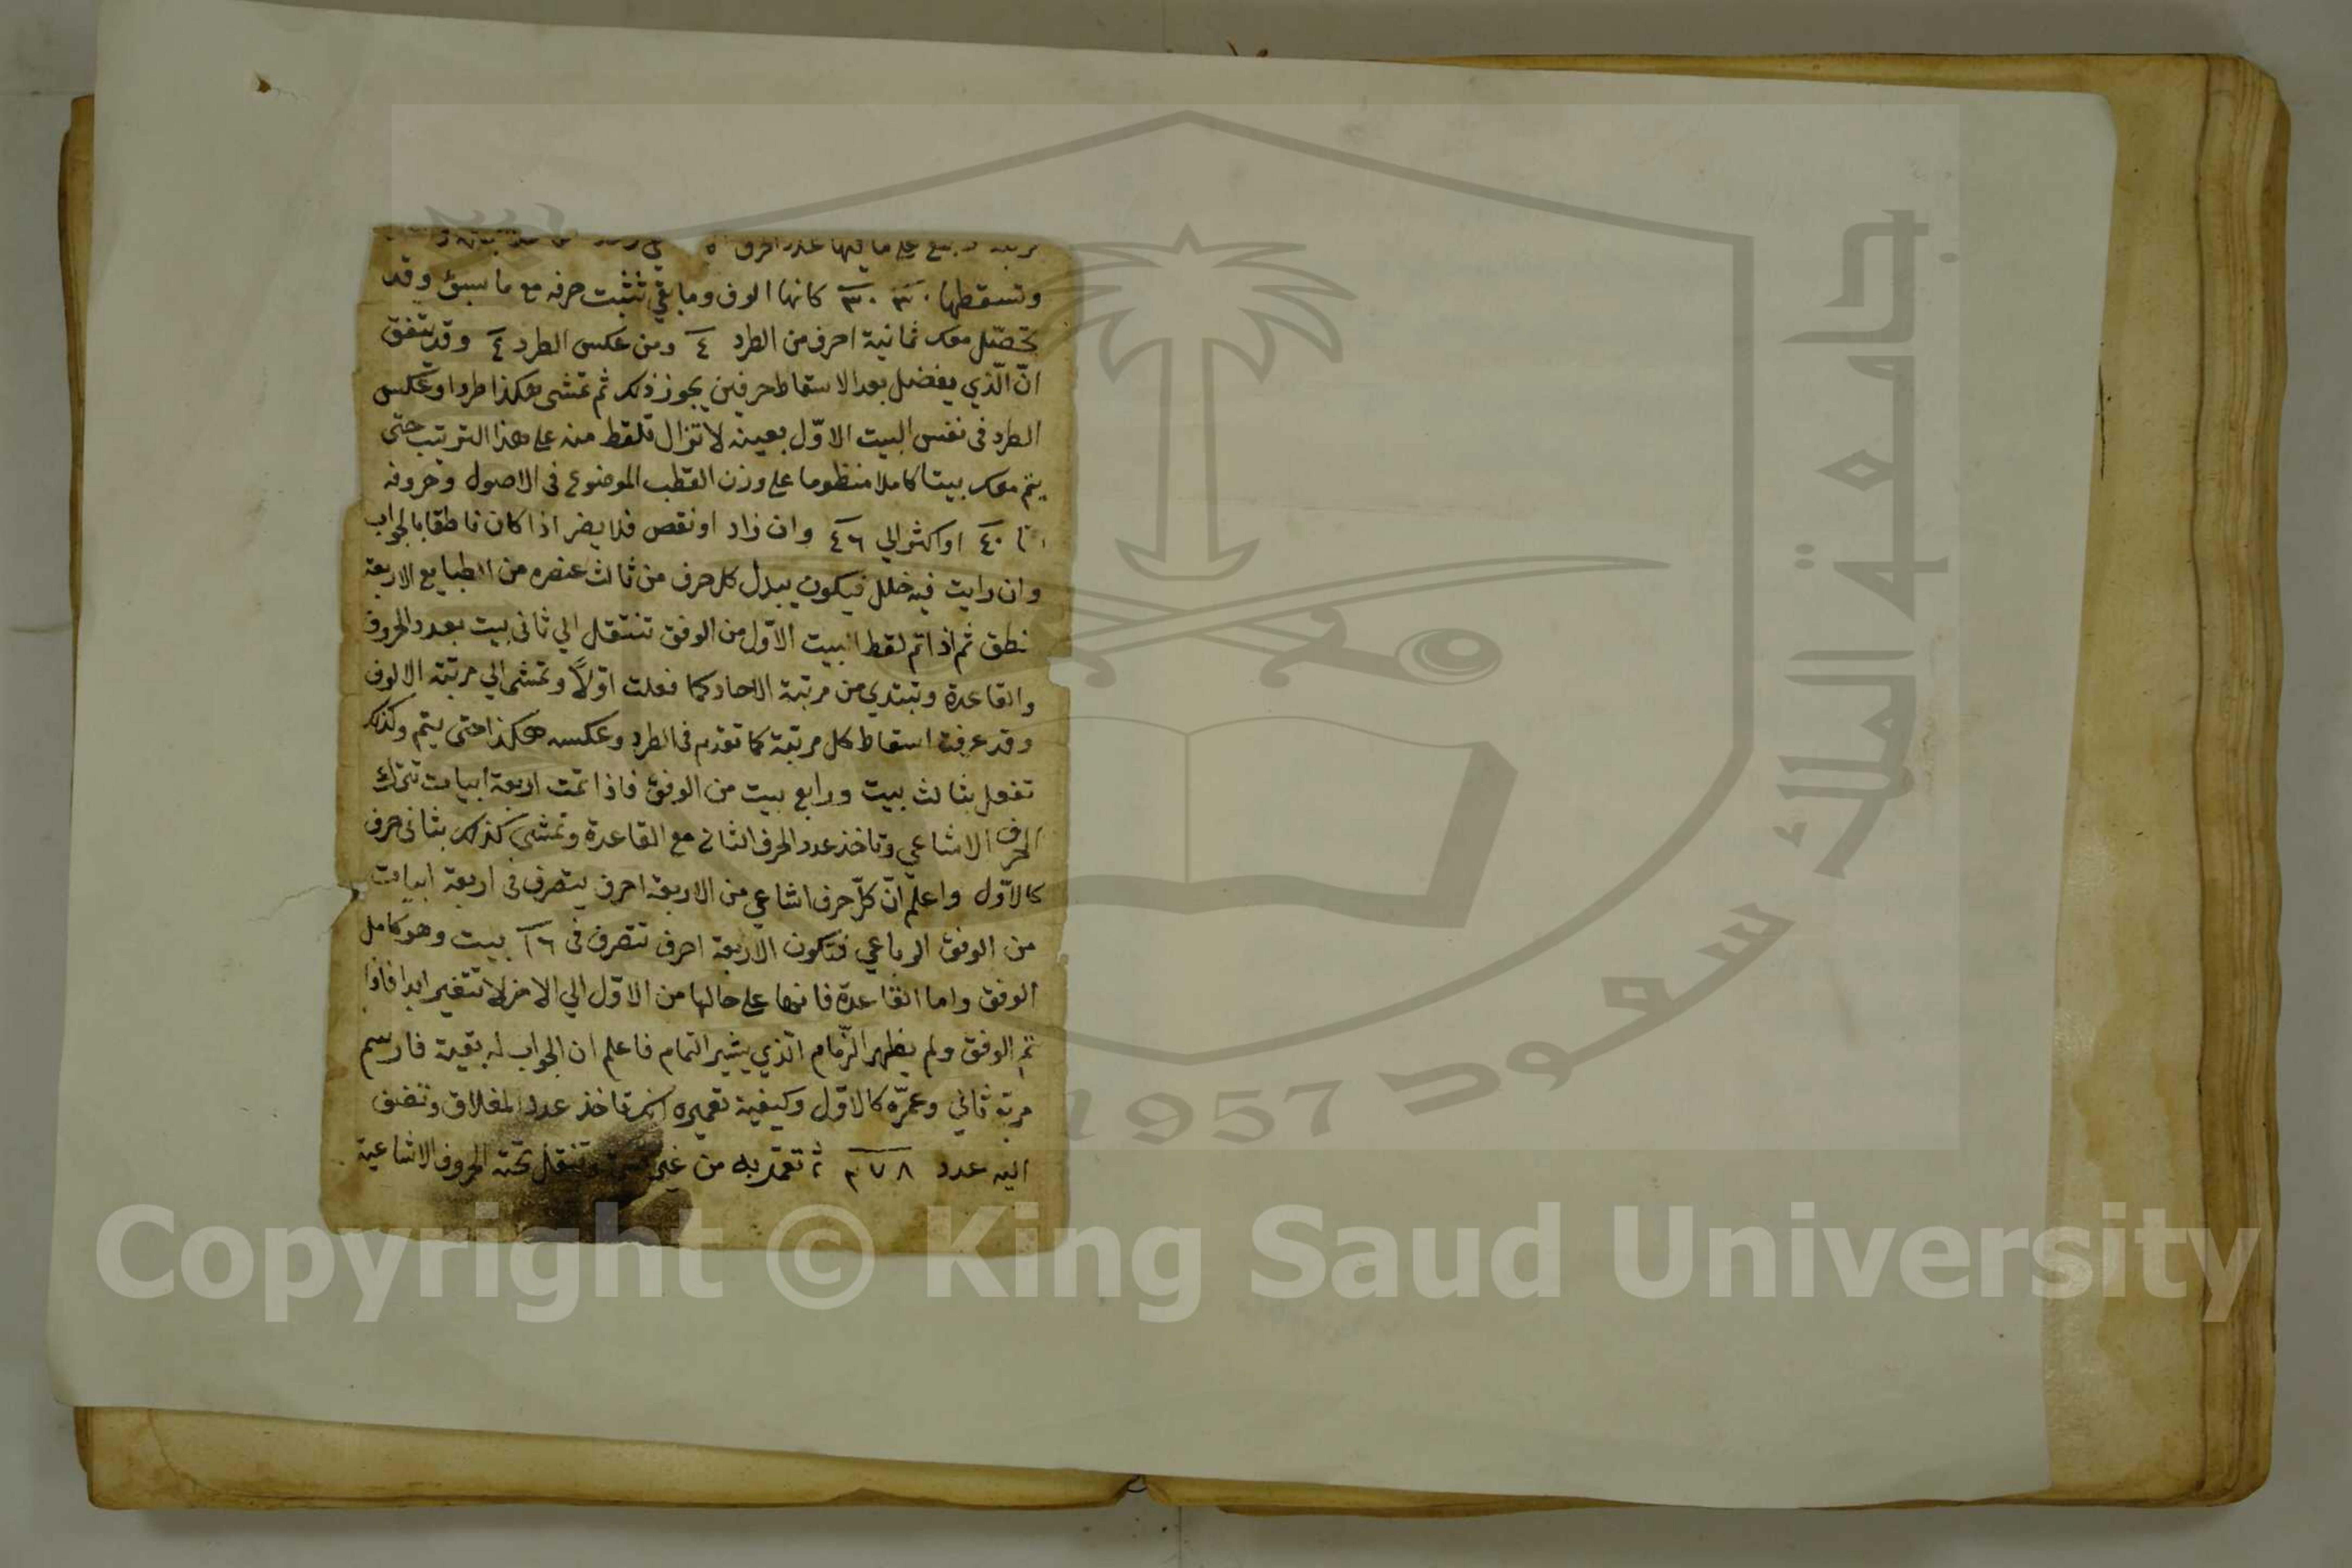 على ما فيها عدد الحرف
وتسقطها ٣٠ ٣٠ كانها الوف وما بقي تثبت حرفه مع ما سبق وقد
تحصّل معك ثمانية احرف من الطرد ٤ ومن عكس الطرد ٤ وقد يتفق
انّ الّذي يفضل بعد الاسقاط حرفين يجوز ذلك ثم تمشى هكذا طردا وعكس
الطرد في نفس البيت الاوّل بعينه لا تزال تلقط منه على هذا الترتيب حتى
يتم معك بيتا كاملا منظوما على وزن القطب الموضوع في الاصول وحروفه
٤٠ او اكثر الي ٤٦ وان زاد او نقص فلا يضر اذا كان ناطقا بالجواب
وان رايت فيه خلل فيكون يبدل كل حرف من ثالث عنصره من الطبايع الاربعة
نطق ثم اذا تم لقط البيت الاوّل من الوفق تنتقل الي ثانى بيت بعدد الحروف
والقاعدة وتبتدي من مرتبة الاحاد كما فعلت اوّلاً وتمشى الي مرتبة الالوف
وقد عرفت اسقاط كل مرتبة كما تقدم في الطرد وعكسه هكذا حتى يتم وكذلك
تفعل بثالث بيت ورابع بيت من الوفق فاذا تمت اربعة ابيات تترك
الحرف الاشاعي وتاخذ عدد الحرف الثاني مع القاعدة وتمشي كذلك بثانى حرف
كالاوّل واعلم انّ كلّ حرف اشاعي من الاربعة احرف يتصرف في اربعة ابيات
من الوفق الرباعي فتكون الاربعة احرف تتصرف في ١٦ بيت وهو كامل
الوفق واما القاعدة فانها على حالها من الاوّل الي الاخر لا تتغير ابدا فاذا
تم الوفق ولم يظهر الزّمام الّذي يشير التمام فاعلم ان الجواب له بقية فارسم
مربّع ثاني وعمّره كالاوّل وكيفية تعميره انك تاخذ عدد المغلاق وتضف
اليه عدد ٣٧٨ ثم تعمّر به من غير وتنقل تحته الحروف الاشاعية
Copyright © King Saud University
جامعة الملك سعود
1957